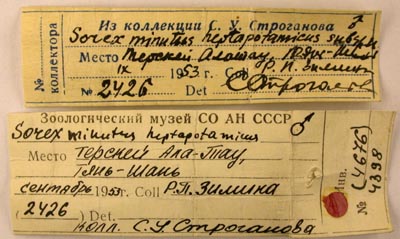 Из коллекции С. У. Строганова ♂
Sorex minutus heptapotamicus subsp. n.
Место Терскей Алатау, Тянь-Шань
IX 1953 Р. П. Зимина
№ 2426 Det. Строганов
№ коллектора
Зоологический музей СО АН СССР
Sorex minutus heptapotamicus ♂
Место Терскей Ала-Тау,
Тянь-Шань
сентябрь 1953г. Coll Р.П. Зимина
(2426) Det.
колл. С.У. Строганова
Инв.
(4676)
4398